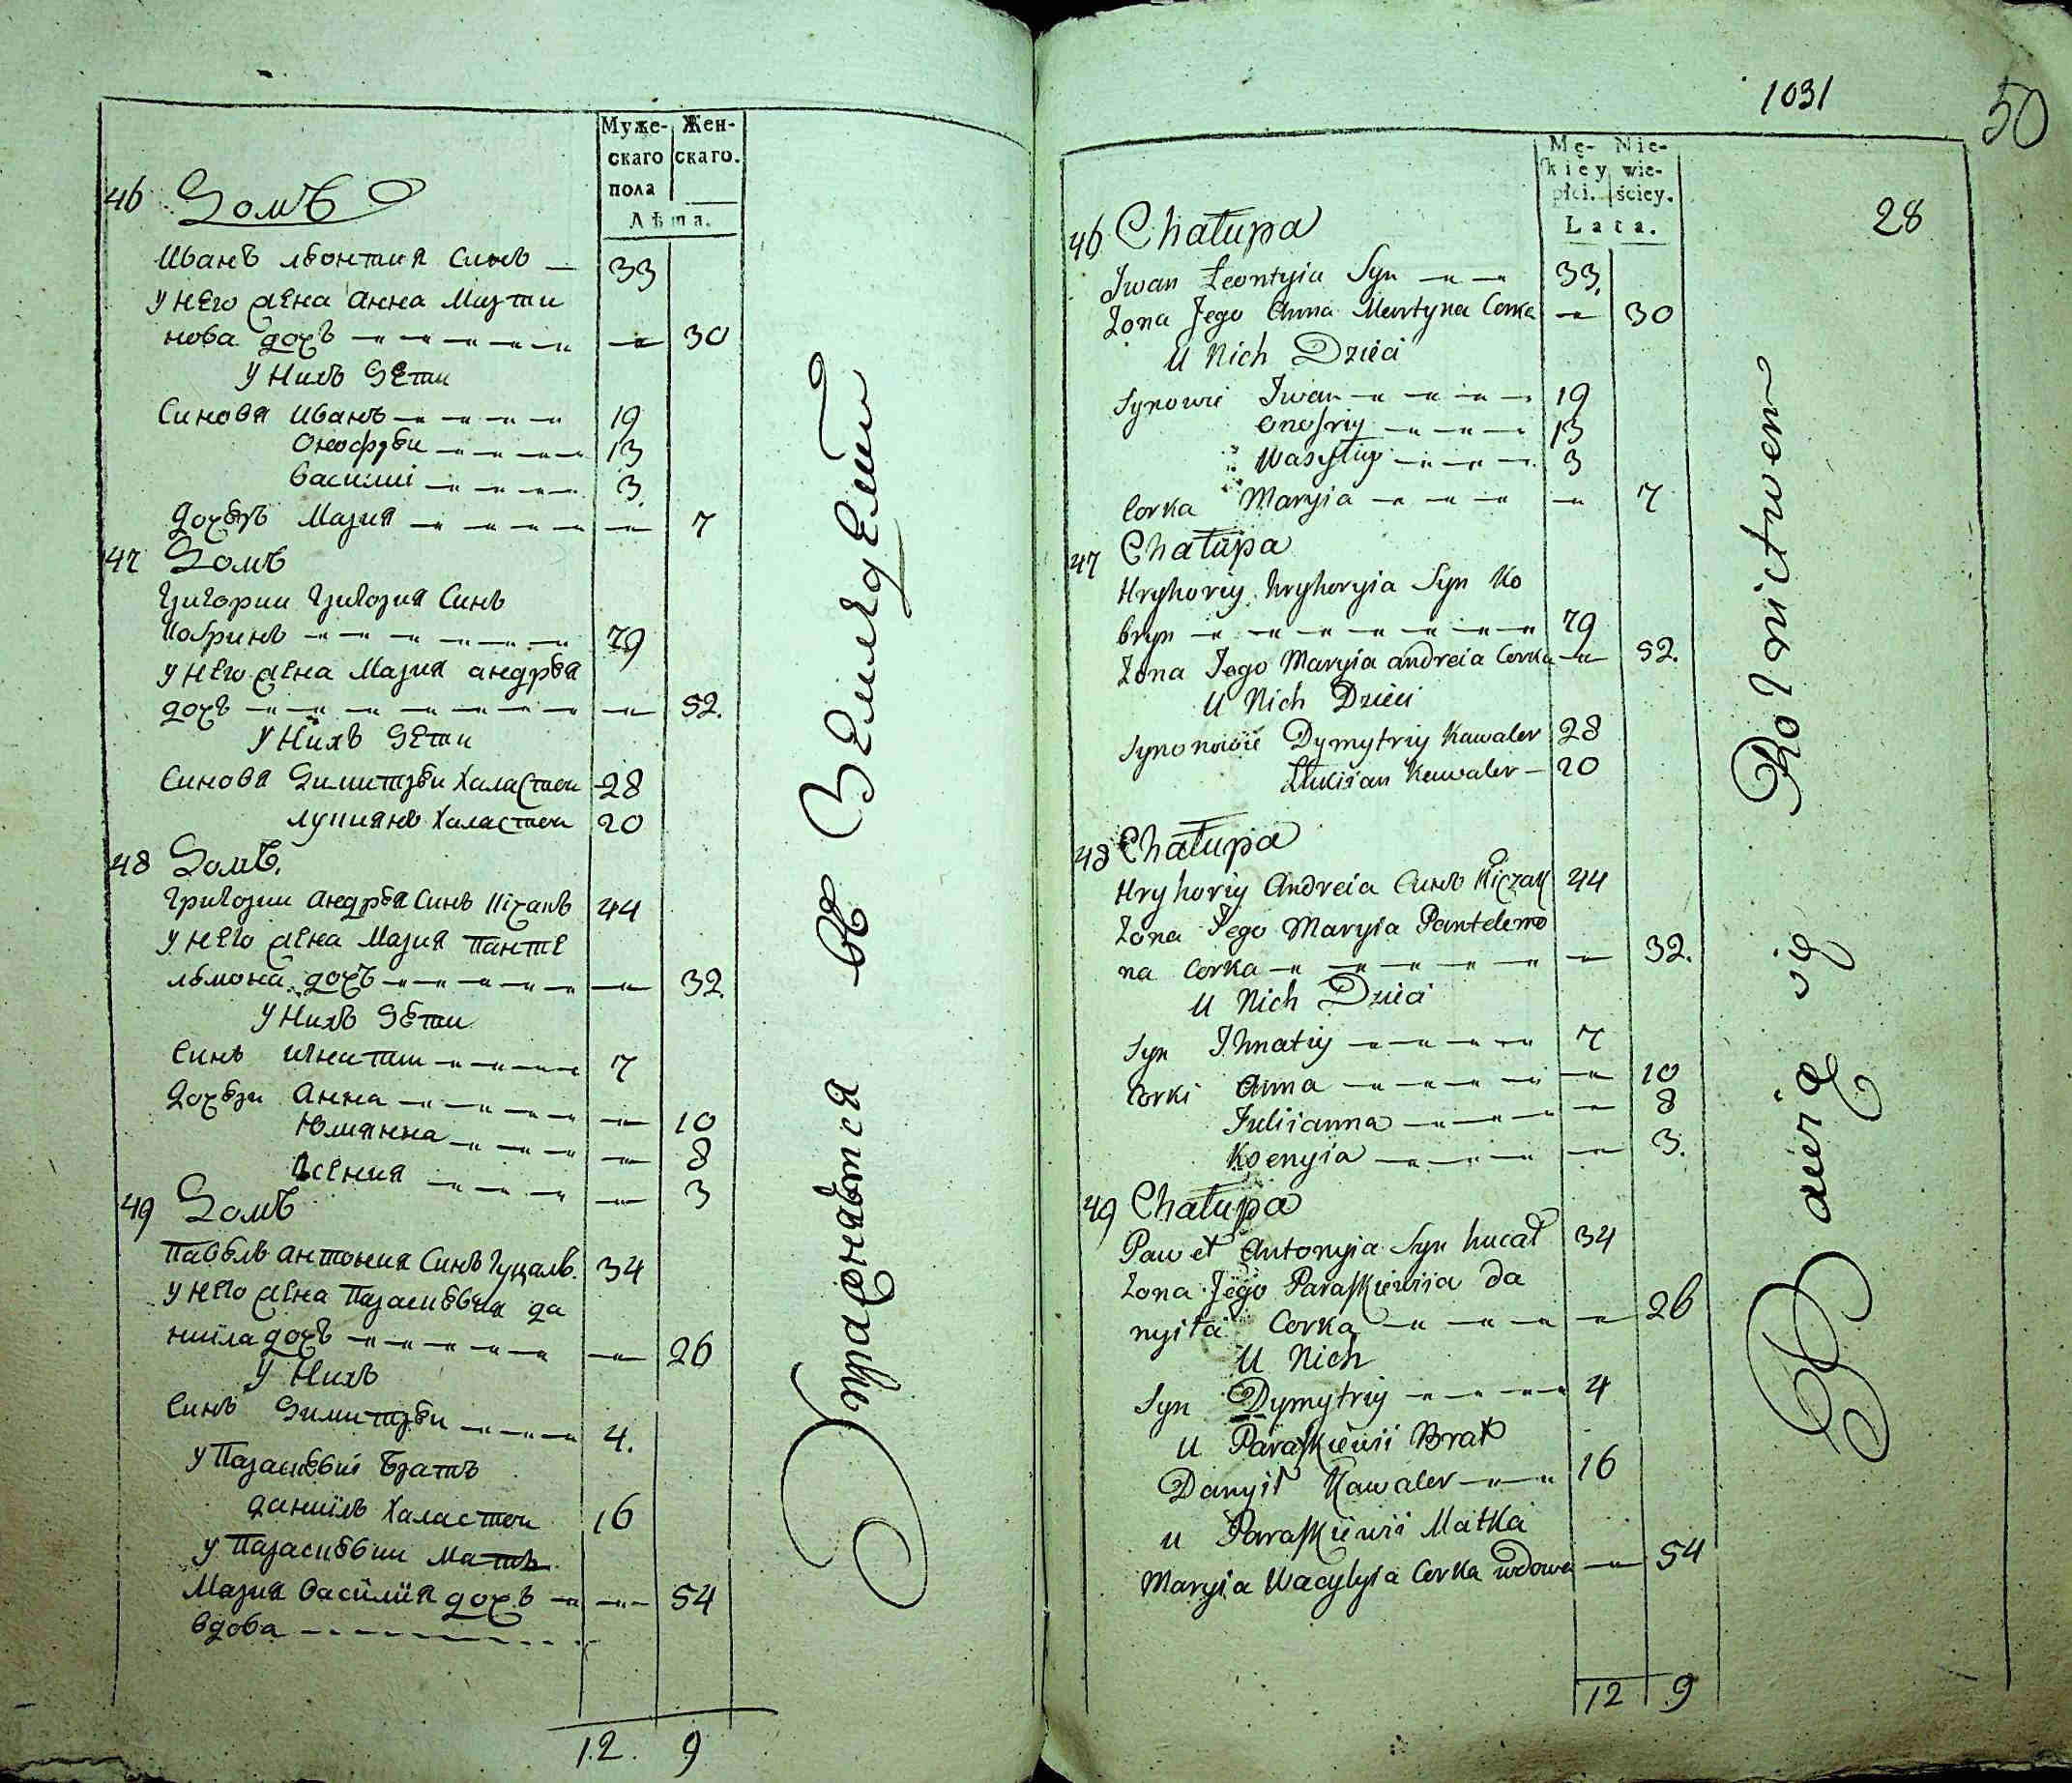 Муже-
скаго
пола
Жен-
скаго.
Лѣта.
46 Домъ
Иванъ леонтия Синъ 33
у него жена Анна Марти
нова дочь 30
у нихъ дети
Синовя Иванъ 19
Онофрѣи 13
Василиі 3.
Дочеръ Мария 7
47 Домъ
Григории Григория Синъ
Кобринъ 79
у него жена Мария андрея
дочъ 52.
у нихъ дети
Синовя Димитрѣи Халастеи 28
лукиянъ Халастеи 20
48 Домъ.
Григории андрея Синъ Кічакъ 44
у него жена Мария панте
лемона дочъ 32.
у нихъ дети
Синъ игнатии 7
Дочери Анна 10
Юлиянна 8
Ксения 3
49 Домъ
Павелъ антония Синъ Гуцалъ. 34
у него жена Параскевия да
ниила дочъ 26
у нихъ
Синъ Димитрѣи 4.
у Параскевиі братъ
даниилъ Халастеи 16
у Параскевии Матъ
Мария Василия дочъ 54
вдова
12. 9
упражняется въ Земледелии
1031
50
28
Mę-
kiey
płci.
Nie-
wie-
ściey.
Lata.
46 Chałupa
Iwan Leontyia Syn 33.
Zona Jego Anna Martyna Corka 30
U Nich Dzieci
Synowie Iwan 19
Onofriy 13
Wasyliy 3
Corka Maryia 7
47 Chałupa
Hryhoriy hryhoryia Syn Ko
bryn 79
Zona Jego Maryia andreia Corka 52.
U Nich Dzieci
Synonowie Dymytriy Kawaler 28
Łukiian Kawaler 20
48 Chałupa
Hryhoriy Andreia Синъ Kiczak 44
Zona Jego Maryia Pantelemo
na Corka 32.
U Nich Dzieci
Syn Ihnatiy 7
Corki Anna 10
Juliianna 8
Ksenyia 3.
49 Chałupa
Paweł Antonyia Syn hucał 34
Zona Jego Paraskiewiia Da
nyiła Corka 26
U Nich
Syn Dymytriy 4
u Paraskiewii Brat
Danyił Kawaler 16
u Paraskiewii Matka
Maryia Wacylyia Corka wdowa 54
12 9
Bawią się Rolnictwem